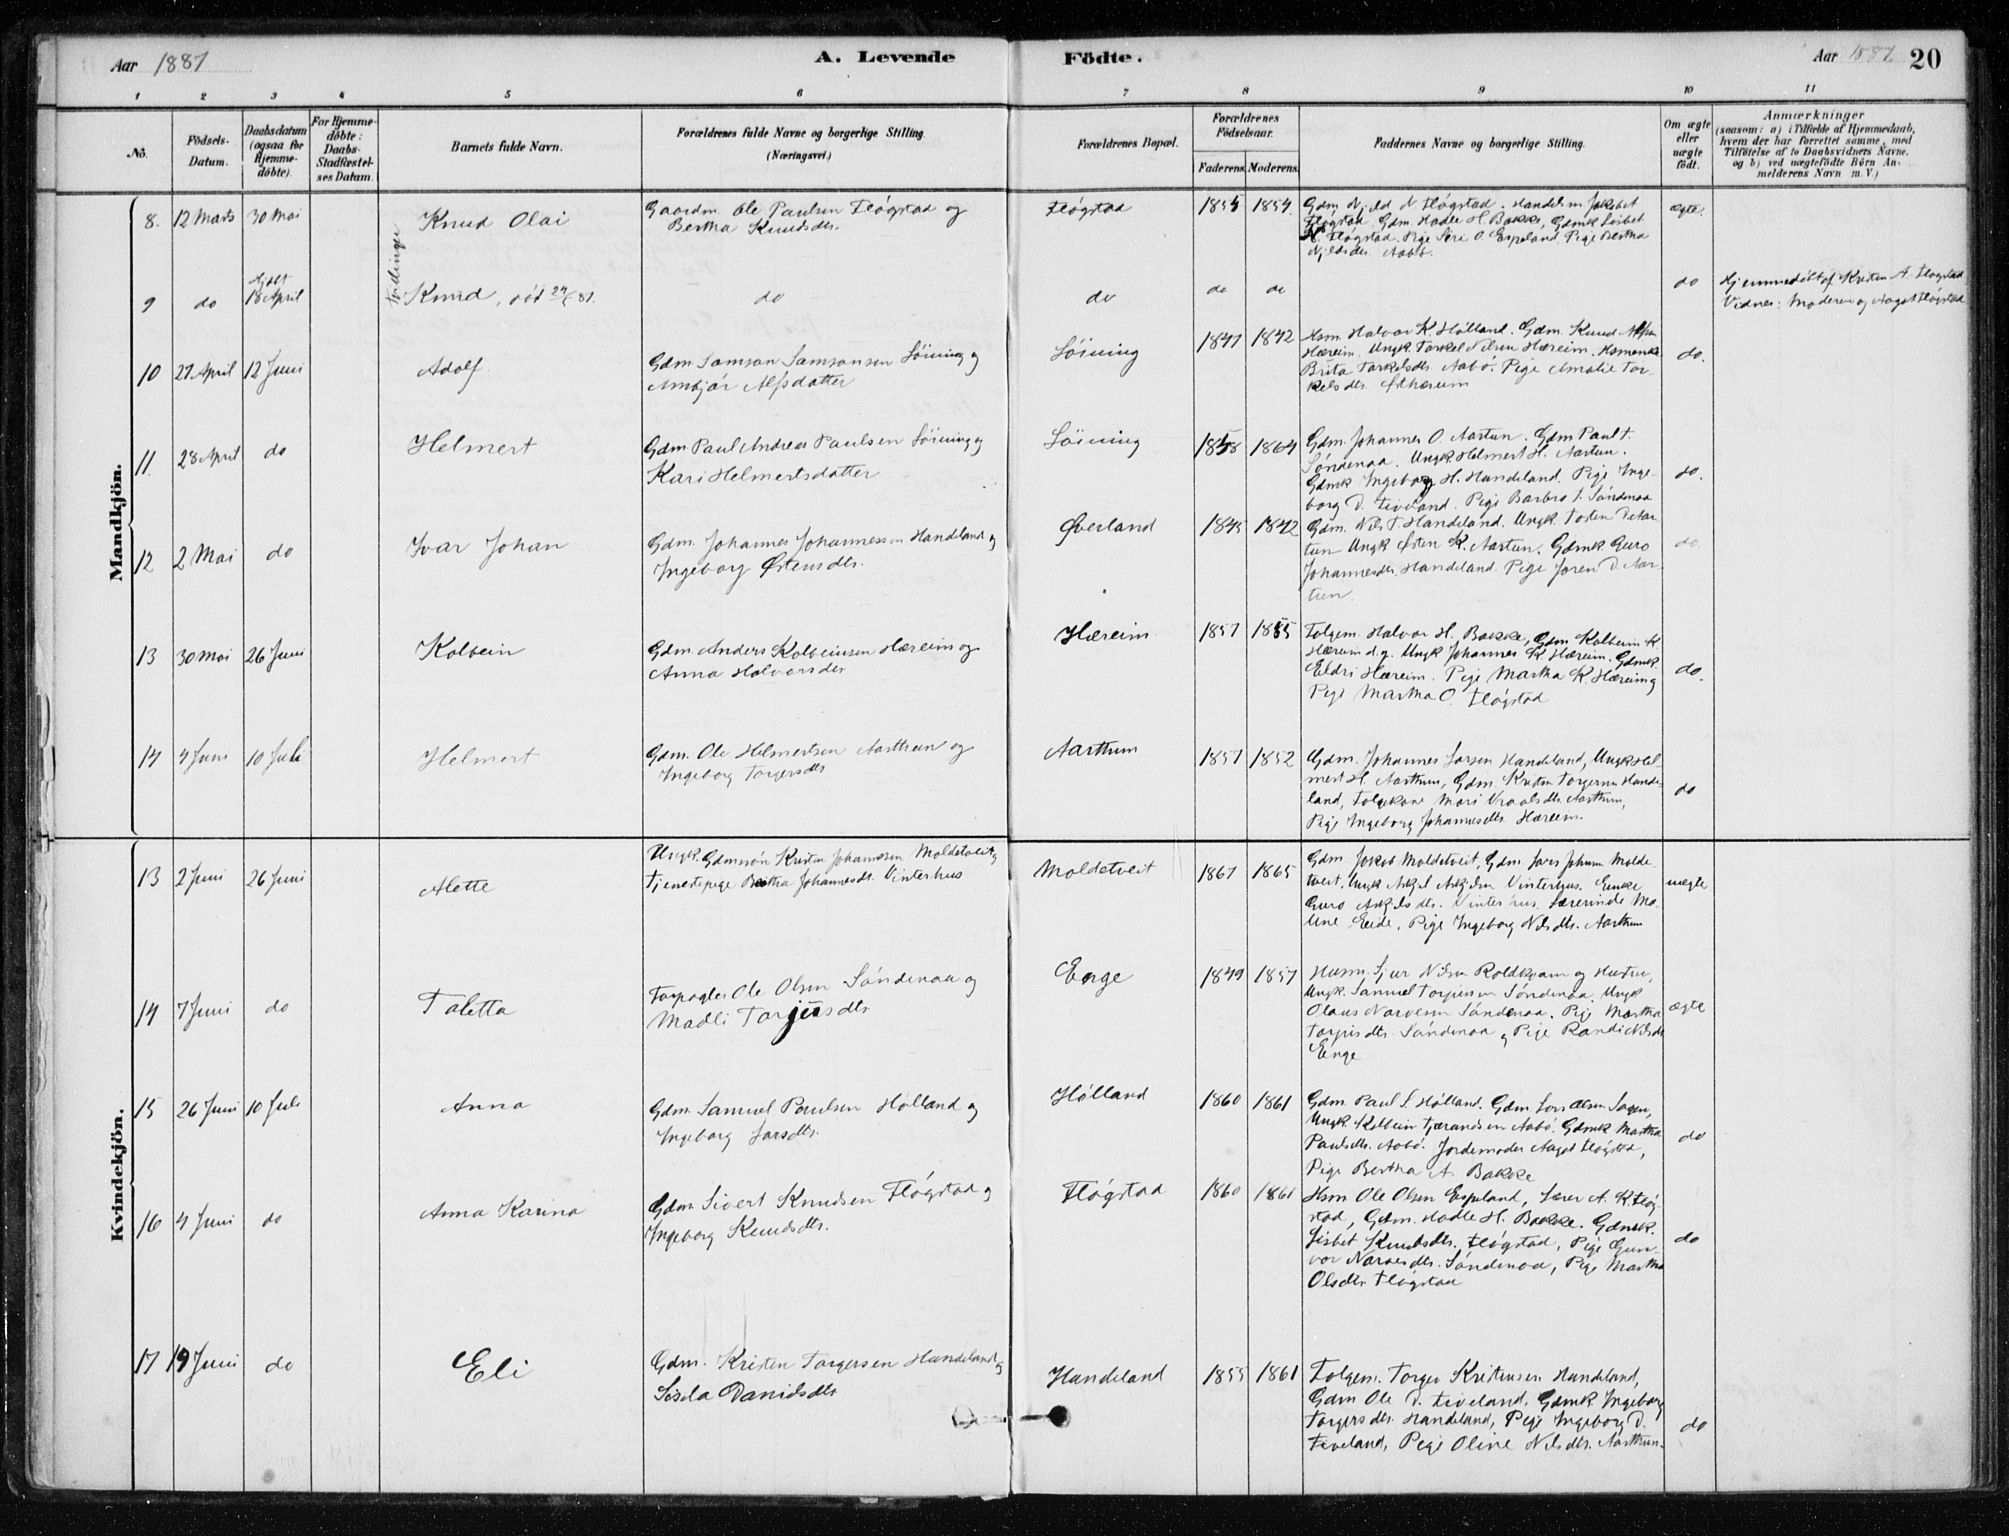 Aar 1887
A. Levende
Födte.
Aar 1887
20
1 2 3 4 5 6 7 8 9 10 11
No.
Födsels-
Datum.
Daabsdatum
(ogsaa for
Hjemme-
döbte).
For Hjemme-
döbte:
Daabs-
Stadfæstel-
ses Datum.
Barnets fulde Navn.
Forældrenes fulde Navne og borgerlige Stilling.
(Næringsvei.)
Forældrenes Bopæl.
Forældrenes
Födselsaar.
Faderens. Moderens.
Faddernes Navne og borgerlige Stilling.
Om ægte
eller
uægte
födt.
Anmærkninger
(saasom: a) i Tilfælde af Hjemmedaab,
hvem der har forrettet samme, med
Tilföielse af to Daabsvidners Navne.
og b) ved uægtefödte Börn An-
melderens Navn m. V.)
Mandkjön.
8. 12 Marts 30 Mai
Tvillinger
Knud Olai
Gaardm. Ole Paulsen Fløgstad og
Bertha Knudsdtr.
Fløgstad
1854 1854
Gdm Njeld N Fløgstad. Handelsm Jakobet
Fløgstad. Gdm. Hadle H. Bakke, Gdmk Lisbet
N. Fløgstad. Pige Siri O. Espeland. Pige Bertha
Njeldsdtr. Aabø.
ægte.
9 do
Hjdbt
18 April
Knud, död 24/5 87.
do
do
do do
do
Hjemmedöbt af Kristen A. Fløgstad
Vidner: Moderen og Aagot Fløgstad
10 27 April 12 Juni
Adolf
Gdm. Samson Samsonsen Løining og
Ambjør Alfsdatter
Løining
1841 1842
Hsm. Halvor K. Hølland. Gdm. Knud
Hæreim. Ungk. Torkel Nilsen Hæreim. Hsmansk.
Brita Torkelsdtr Aabø. Pige Amalie Tor-
kelsdtr. Østhæreim
do.
11. 28 April do
Helmert
Gdm. Paul Andreas Paulsen Løining og
Kari Helmertsdatter
Løining
1858 1864
Gdm. Johannes O. Aartun. Gdm Paul T.
Søndenaa. Ungk. Helmert H. Aartun.
Gdmk Ingeborg H. Handeland. Pige Inge-
borg D. Fiveland. Pige Barbro T. Søndenaa
do.
12 2 Mai do
Ivar Johan
Gdm. Johannes Johannessen Handeland og
Ingeborg Østensdtr.
Øverland
1845 1842
Gdm. Nils T. Handeland. Ungk. Tosten D. Aar-
tun Ungk Østen K. Aartun. Gdmk. Guro
Johannesdtr. Handeland. Pige Joren D. Aar-
tun.
do.
13 30 Mai 26 Juni
Kolbein
Gdm. Anders Kolbeinsen Hæreim og
Anna Halvorsdtr
Hæreim
1857 1855
Folgem. Halvor H. Bakke, Gdm Kolbein K
Hæreim d.y. Ungk Johannes K. Hæreim. Gdmk.
Eldri Hæreim. Pige Martha K. Hæreim og
Pige Martha O. Fløgstad
do.
14 4 Juni 10 Juli
Helmert
Gdm. Ole Helmertsen Aarthun og
Ingeborg Torgersdtr
Aarthun
1857 1852
Gdm. Johannes Larsen Handeland, Ungk Hel-
mert H. Aarthun, Gdm. Kristen Torgersen Hande-
land, Folgekone Mari Vraalsdtr. Aarthun,
Pige Ingeborg Johannesdtr. Hæreim.
do
Kvindekjön.
13 2 Juni 26 Juni
Alette
Ungk. Gdmssøn Kristen Johannesen Moldetveit og
Tjenestepige Bertha Johannesdtr. Vinterhus
Moldetveit
1867 1865
Gdm. Jakob Moldetveit, Gdm. Lars Johans. Molde-
tveit. Ungk Askjel Askjelsen Vinterhus. Enke
Guro Askjelsdtr. Vinterhus. Lærerinde Mo-
line Eide, Pige Ingeborg Nilsdtr. Aarthun
uægte
14 7 Juni do
Taletta
Forpagter Ole Olsen Søndenaa og
Madli Torjusdtr.
Enge
1849 1857
Husm. Sjur Nilsen Roldkvam og Hustru,
Ungk. Samuel Torjussen Søndenaa. Ungk
Olaus Narvesen Søndenaa. Pige Martha
Torjusdtr. Søndenaa og Pige Randi Nilsdtr
Enge
ægte
15 26 Juni 10 Juli
Anna
Gdm. Samuel Paulsen Hølland og
Ingeborg Larsdtr.
Hølland
1860 1861
Gdm. Paul S. Hølland. Gdm. Lars Olsen Sagen,
Ungk. Kolbein Tjerandsen Aabø. Gdmk Martha
Paulsdtr. Aabø. Jordemoder Aagot Fløgstad,
Pige Bertha A. Bakke
do
16 4 Juni do
Anna Karina
Gdm. Sivert Knudsen Fløgstad og
Ingeborg Knudsdtr.
Fløgstad
1860 1861
Hsm Ole Olsen Espeland, Lærer A. K. Fløg-
stad, Gdm. Hadle H. Bakke. Gdmsk.
Lisbet Knudsdtr. Fløgstad, Pige Gun-
vor Narvesdtr. Søndenaa, Pige Martha
Olsdtr Fløgstad
do
17 19 Juni do
Eli
Gdm. Kristen Torgersen Handeland og
Sisela Danielsdtr
Handeland
1855 1861
Folgem. Torger Kristensen Handeland,
Gdm Ole D. Fiveland, Gdmk Ingeborg
Torgersdtr Handeland, Pige Ingeborg D.
Fiveland, Pige Oline Nilsdtr. Aarthun.
do